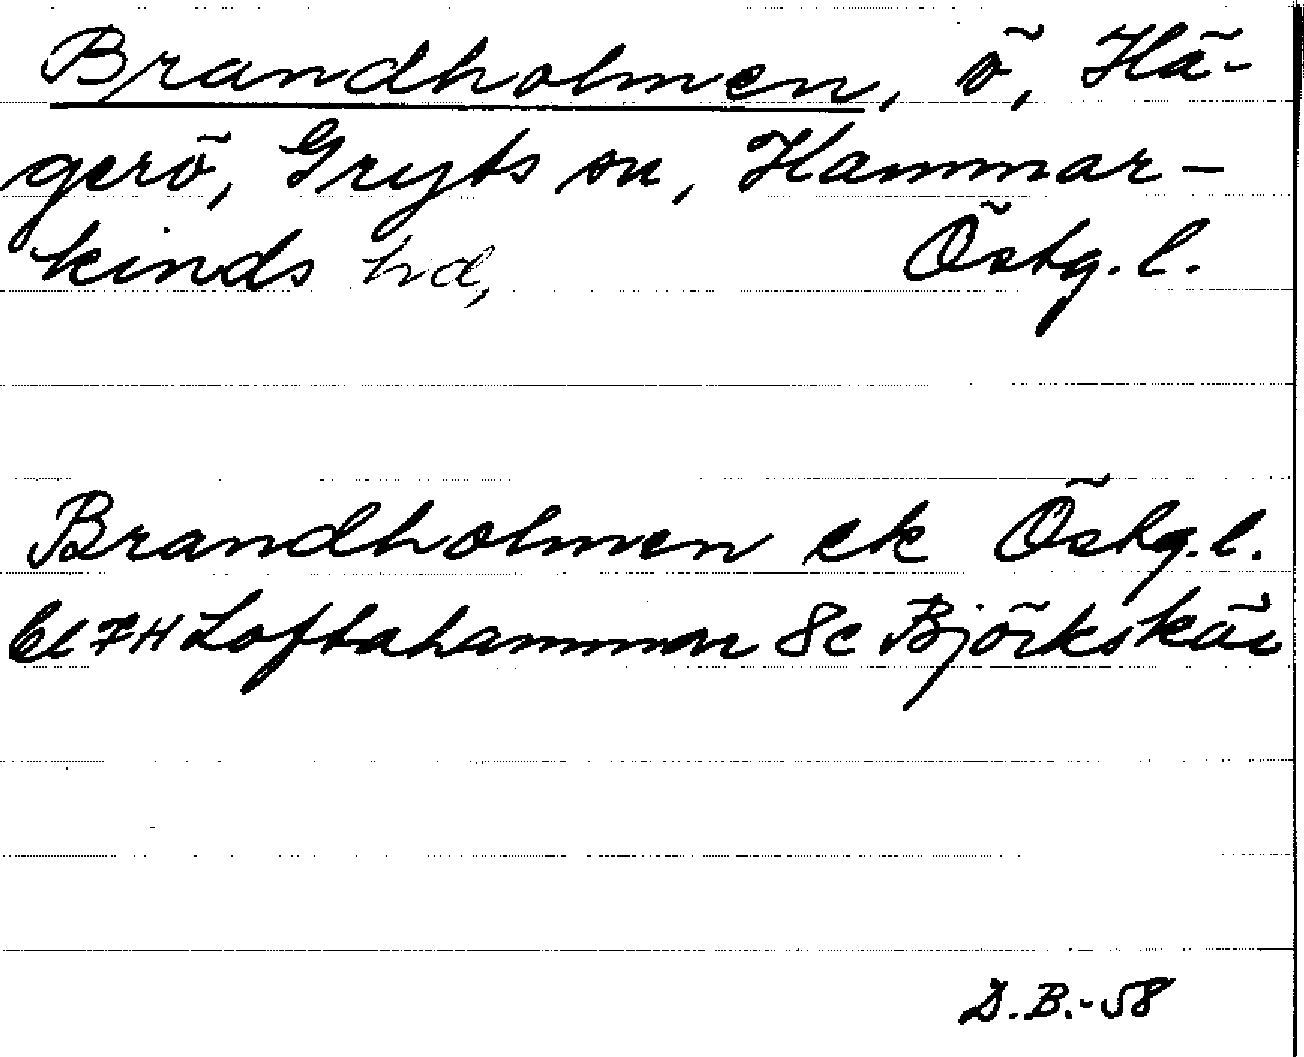 Brandholmen, ö, Hä-
gerö, Gryts sn, Hammar-
kinds hd, Östg. l.
Brandholmen ek Östg. l.
Loftahammar 8c Björkskär
D.B.-58